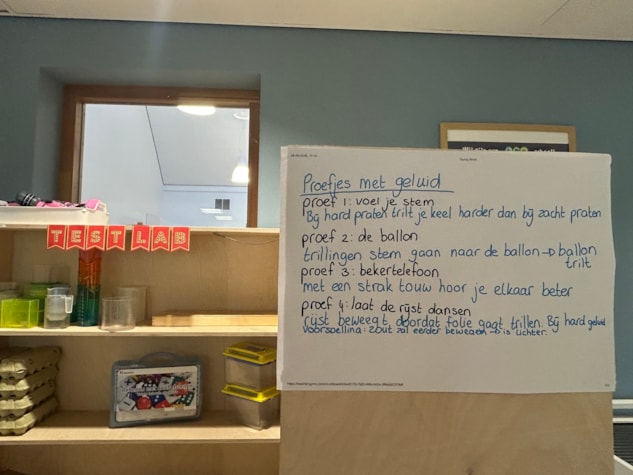 TESTLAB
Proefjes met geluid
proef 1: voel je stem
Bij hard praten trilt je keel harder dan bij zacht praten
proef 2: de ballon
trillingen stem gaan naar de ballon → ballon
trilt
proef 3: bekertelefoon
met een strak touw hoor je elkaar beter
proef 4: laat de rijst dansen
rijst beweegt doordat folie gaat trillen. Bij hard geluid
Voorspelling: zout zal eerder bewegen → is lichter.